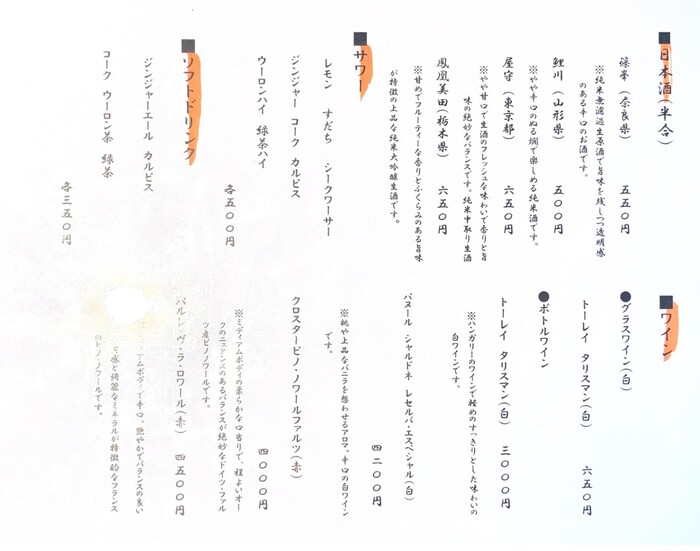 ■日本酒(半合)
篠峯(奈良県) 五五〇円
※純米無濾過生原酒で旨味を残しつつ透明感
のある辛口のお酒です。
鯉川(山形県) 五〇〇円
※やや辛口のぬる燗で楽しめる純米酒です。
屋守(東京都) 六五〇円
※やや甘口で生酒のフレッシュな味わいで香りと旨
味の絶妙なバランスです。純米中取り生酒
鳳凰美田(栃木県) 六五〇円
※甘めでフルーティーな香りとふくらみのある旨味
が特徴の上品な純米大吟醸生酒です。
■サワー
レモン すだち シークワーサー
ジンジャー コーク カルピス
ウーロンハイ 緑茶ハイ
各五〇〇円
■ソフトドリンク
ジンジャーエール カルピス
コーク ウーロン茶 緑茶
各三五〇円
■ワイン
●グラスワイン(白)
トーレイ タリスマン(白) 六五〇円
●ボトルワイン
トーレイ タリスマン(白) 三〇〇〇円
※ハンガリーのワインで軽めのすっきりとした味わいの
白ワインです。
パヌール シャルドネ レセルバ・エスペシャル(白)
四二〇〇円
※桃や上品なバニラを想わせるアロマ。辛口の白ワイン
です。
クロスターピノ・ノワールファルツ(赤)
四〇〇〇円
※ミディアムボディの柔らかな口当りで、程よいオー
クのニュアンスのあるバランスが絶妙なドイツ・ファル
ツ産ピノノワールです。
パルシ・ヴ・ラ・ロワール(赤) 四五〇〇円
アムボディで辛口。艶やかでバランスの良い
感と綺麗なミネラルが特徴的なフランス
のピノ・ノワールです。